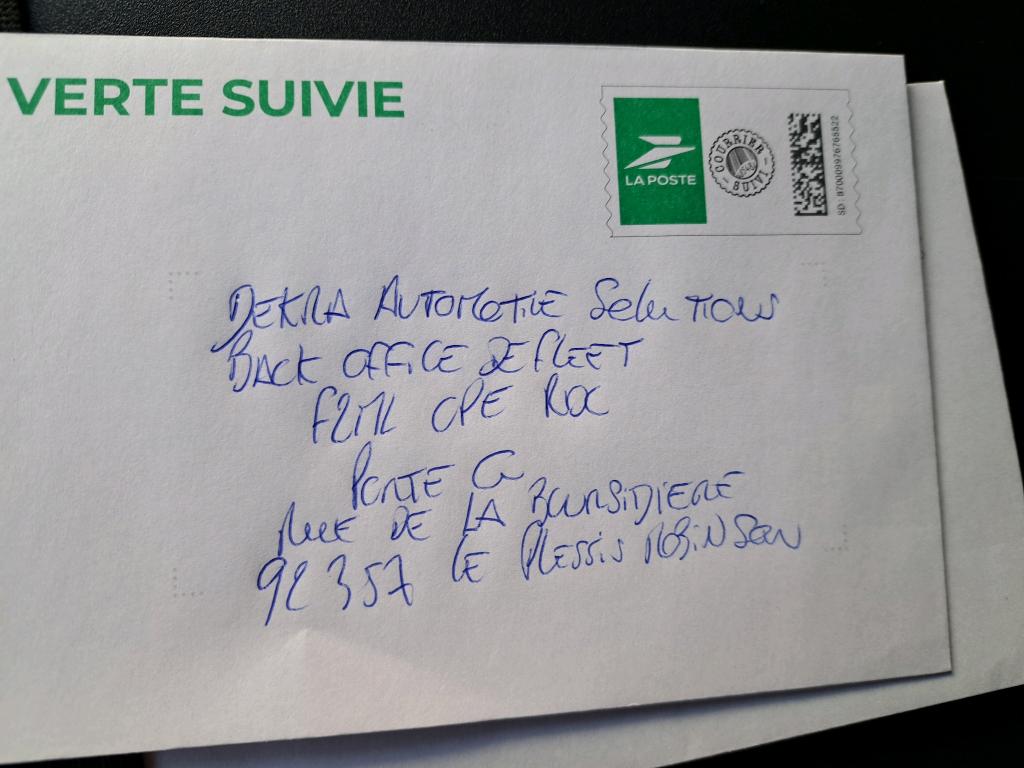 VERTE SUIVIE
LA POSTE
COURRIER SUIVI
SD: 87000997676S522
DEKRA AUTOMOTIVE Solutions
BACK OFFICE DEFLEET
F2ML CPE ROC
PORTE G
RUE DE LA BOURSIDIERE
92357 LE PLESSIS ROBINSON